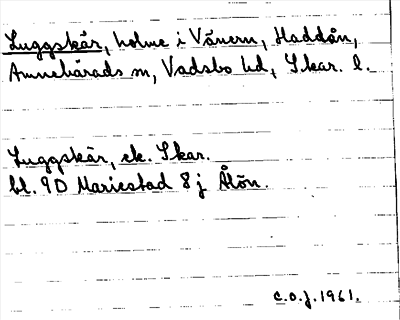 Luggskär, holme i Vänern, Haddån,
Amnehärads sn, Vadsbo hd, Skar. l.
Luggskär, ek. Skar.
bl. 9D Mariestad 8j Ålön.
C.O.J. 1961.